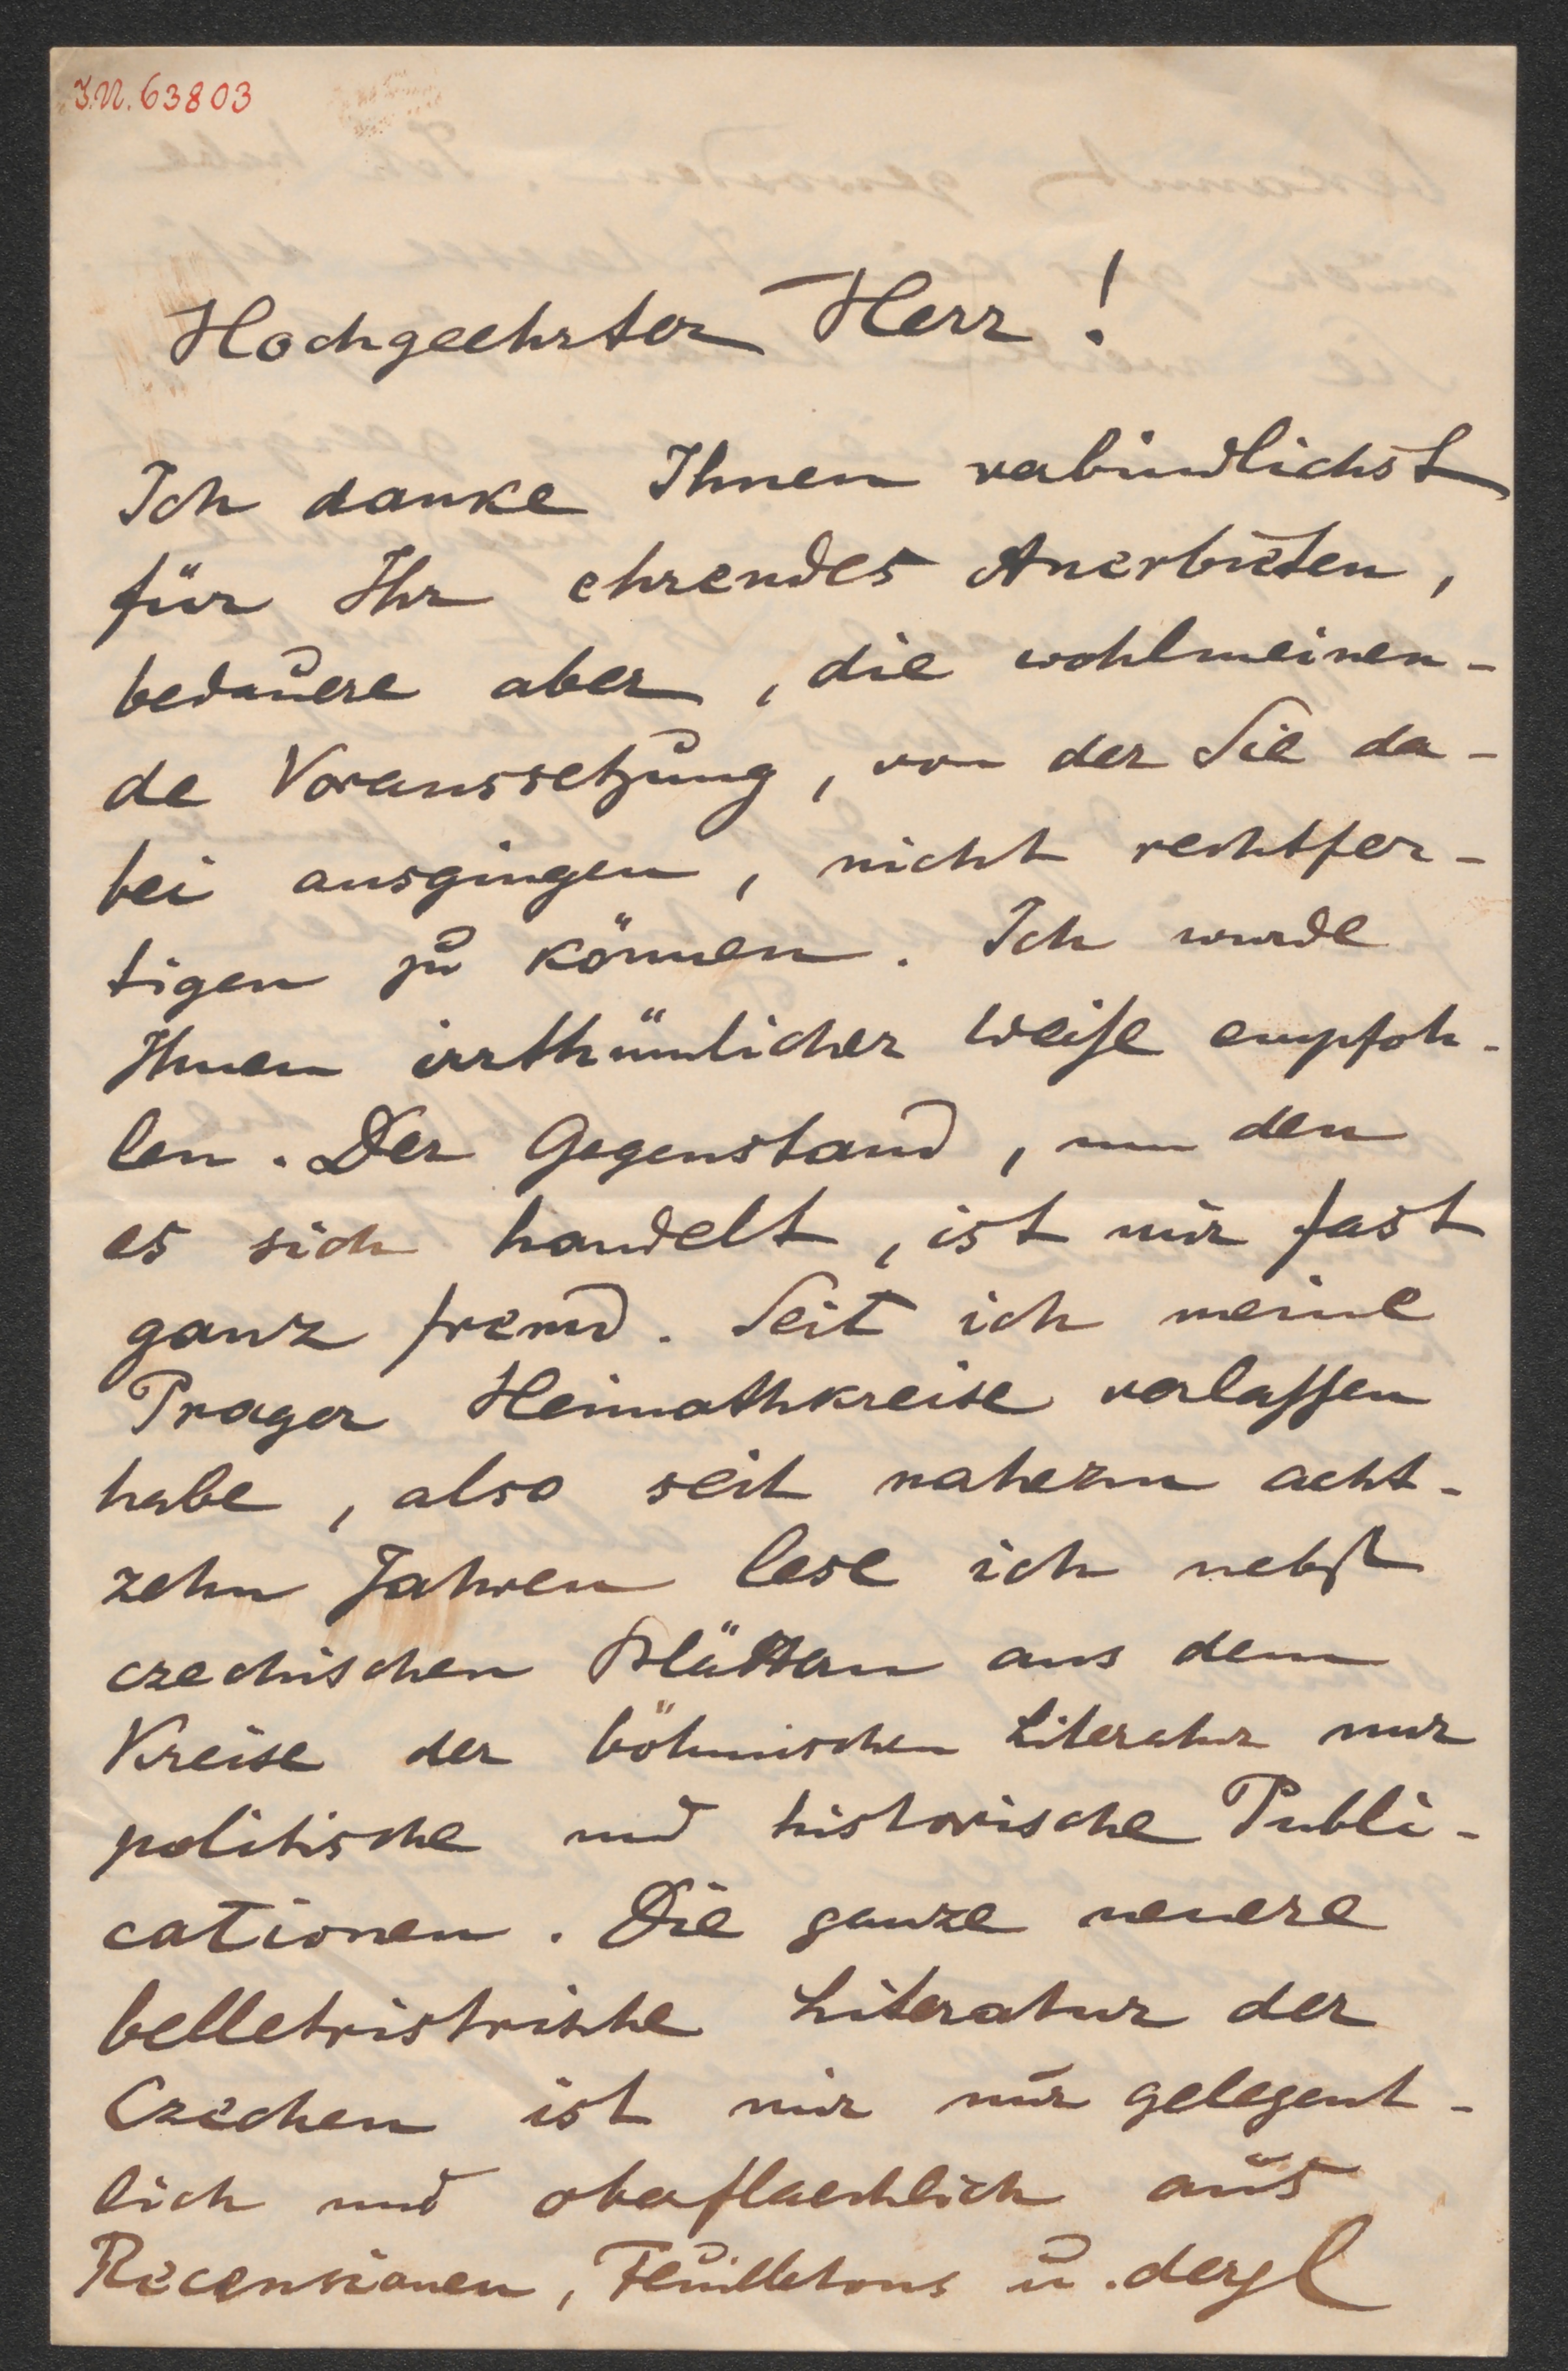 I.N. 63803
Hochgeehrter Herr !
Ich danke Ihnen verbindlichst
für Ihr ehrendes Anerbieten,
bedauere aber, die wohlmeinen-
de Voraussetzung, von der Sie da-
bei ausgingen, nicht rechtfer-
tigen zu können. Ich wurde
Ihnen irrthümlicher Weise empfoh-
len. Der Gegenstand, um den
es sich handelt, ist mir fast
ganz fremd. Seit ich meine
Prager Heimathkreise verlassen
habe, also seit nahezu acht-
zehn Jahren lese ich nebst
czechischen Blättern aus dem
Kreise der böhmischen Literatur nur
politische und historische Publi-
cationen. Die ganze neuere
belletristrische Literatur der
Czechen ist mir nur gelegent-
lich und oberflaechlich aus
Recensionen, Feuilletons u. dergl